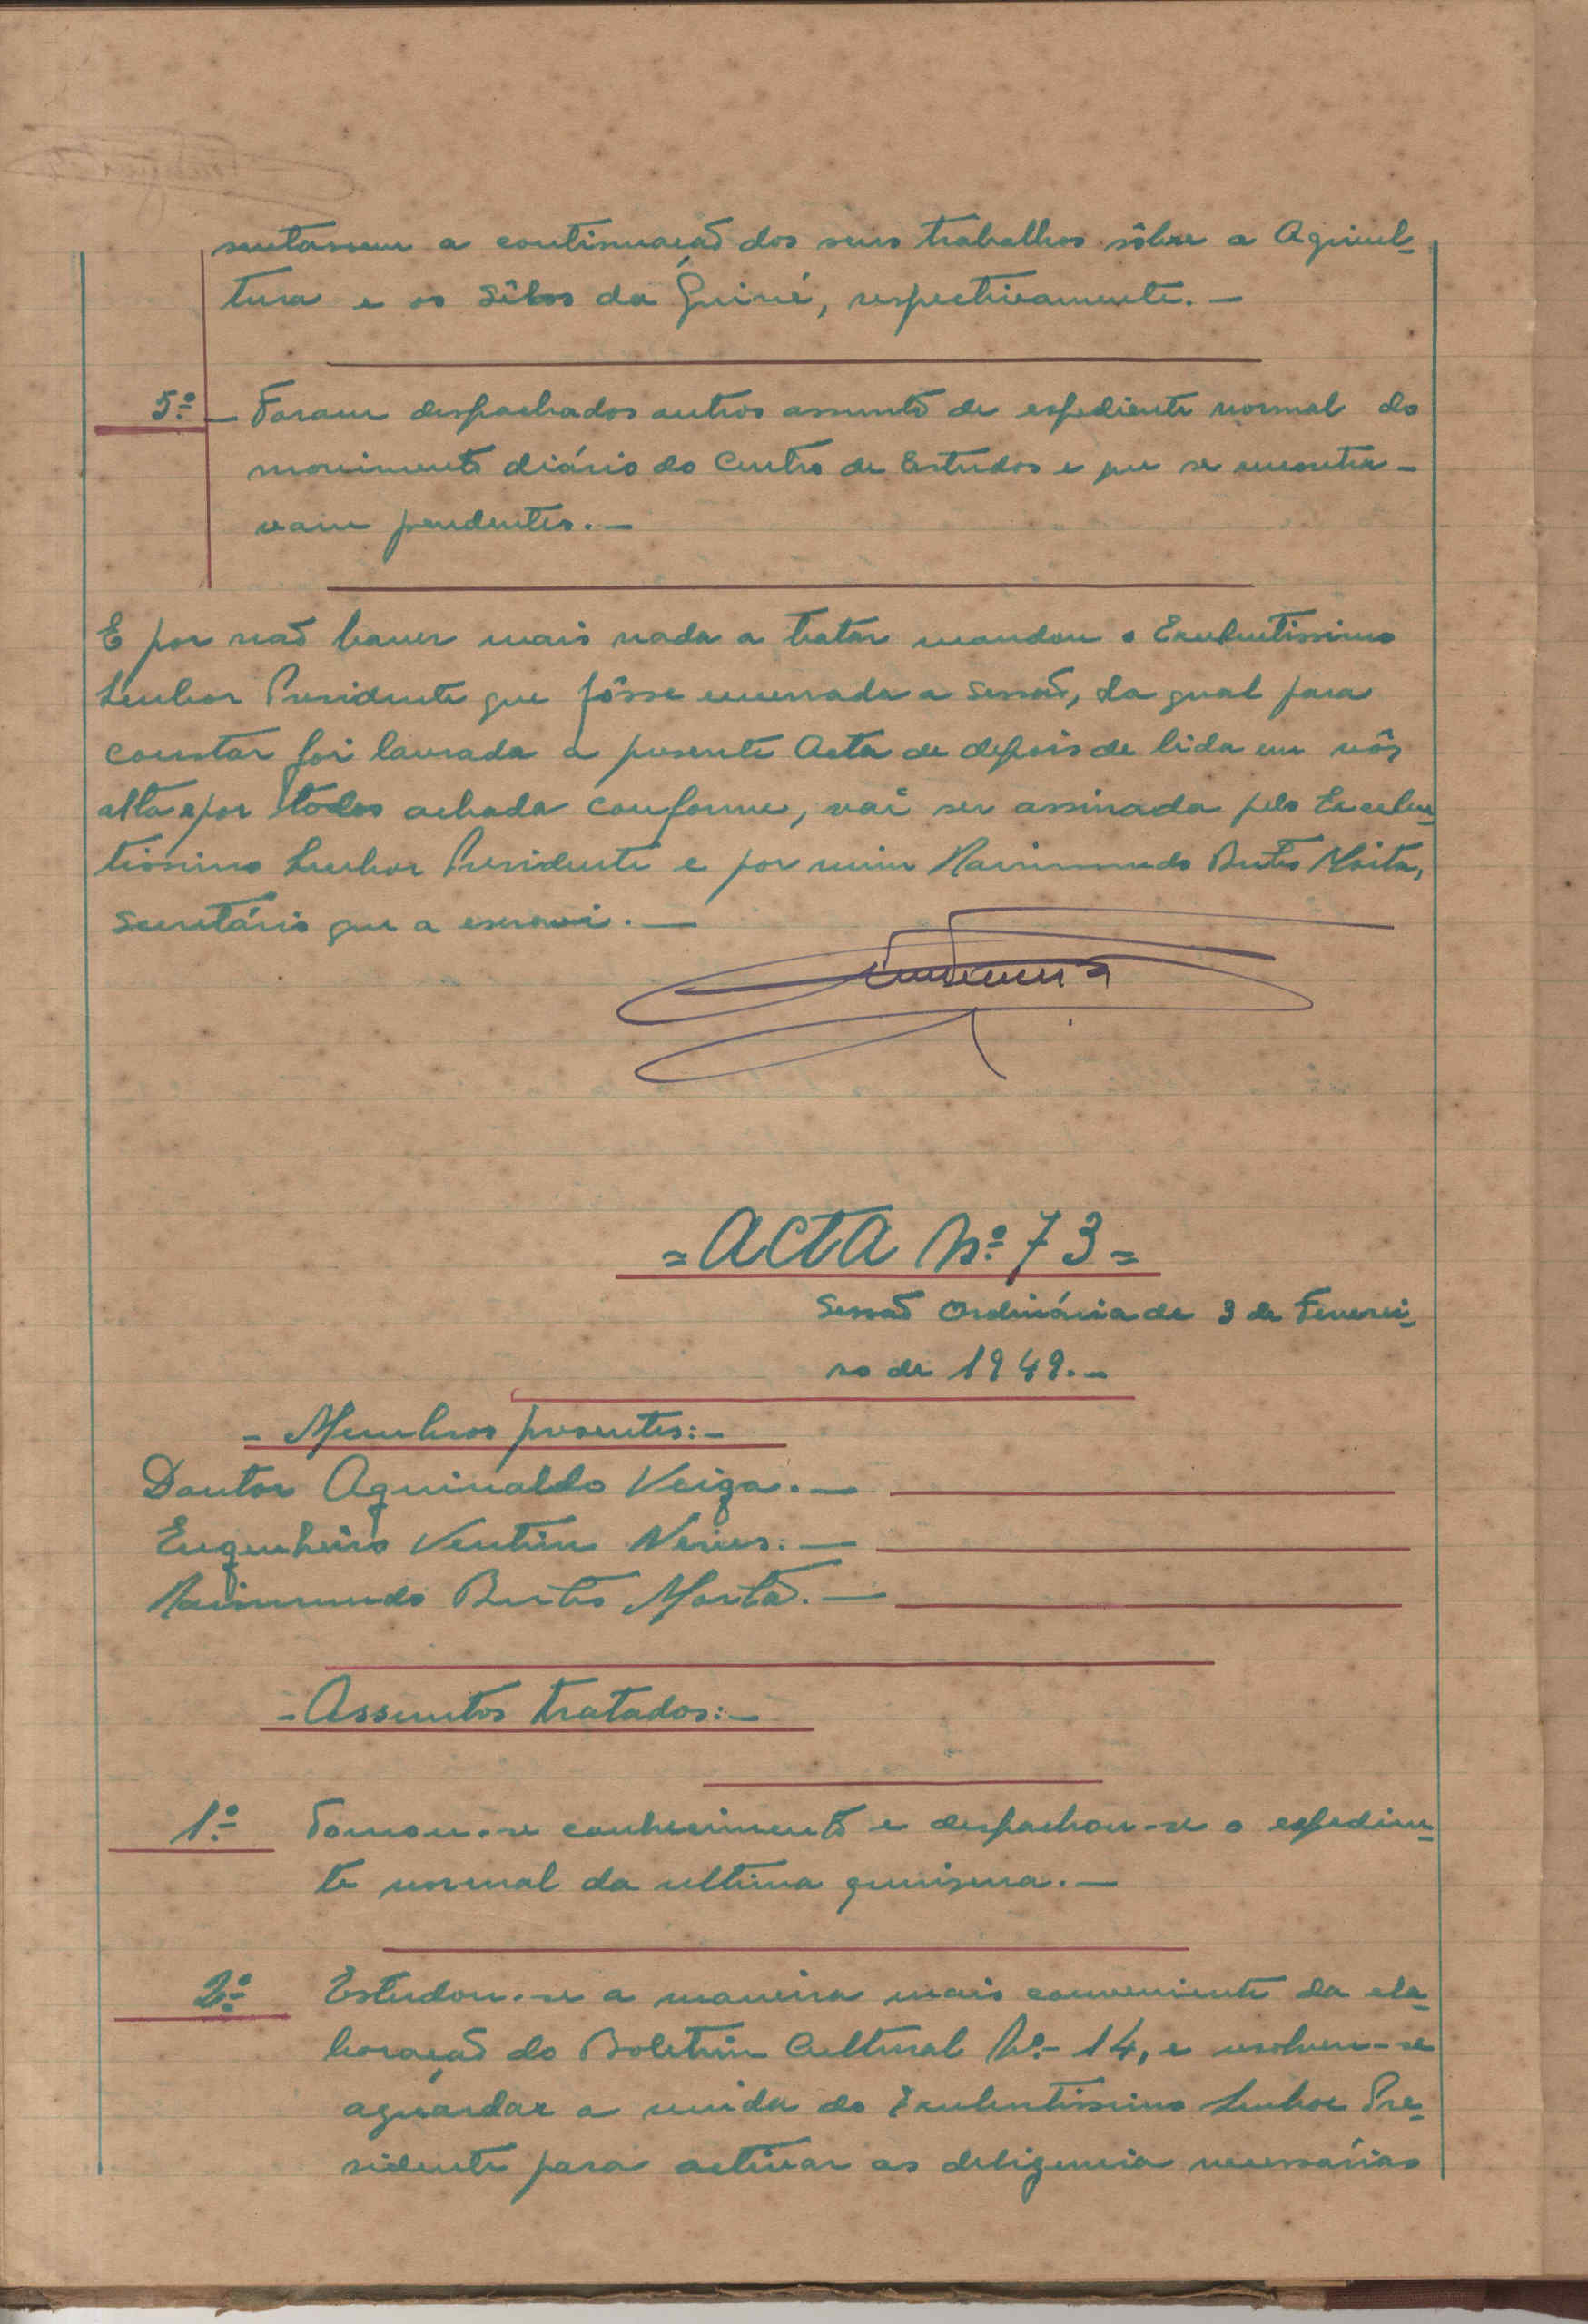 sentassem a continuação dos seus trabalhos sôbre a Agricul-
tura e os Sêlos da Guiné, respectivamente.—
5.º — Foram despachados outros assuntos de expediente normal do
movimento diário do Centro de Estudos e que se encontra-
vam pendentes.—
E por não haver mais nada a tratar mandou o Excelentissimo
Senhor Presidente que fôsse encerrada a sessão, da qual para
constar foi lavrada a presente Acta de depois de lida em vôz
alta e por todos achada conforme, vai ser assinada pelo Excelen-
tissimo Senhor Presidente e por mim
Secretário que a escrevi.—
= ACTA N.º 73 =
Sessão Ordinária de 3 de Feverei-
ro de 1949.—
- Membros presentes:-
Doutor Aguinaldo Veiga.—
Engenheiro Ventim Neves.—
- Assuntos tratados:-
1.º Tomou-se conhecimento e despachou-se o expedien-
te normal da ultima quinzena.—
2.º Estudou-se a maneira mais conveniente da ela-
boração do Boletim Cultural N.º 14, e resolveu-se
aguardar a vinda do Excelentissimo Senhor Pre-
sidente para activar as deligencia necessárias